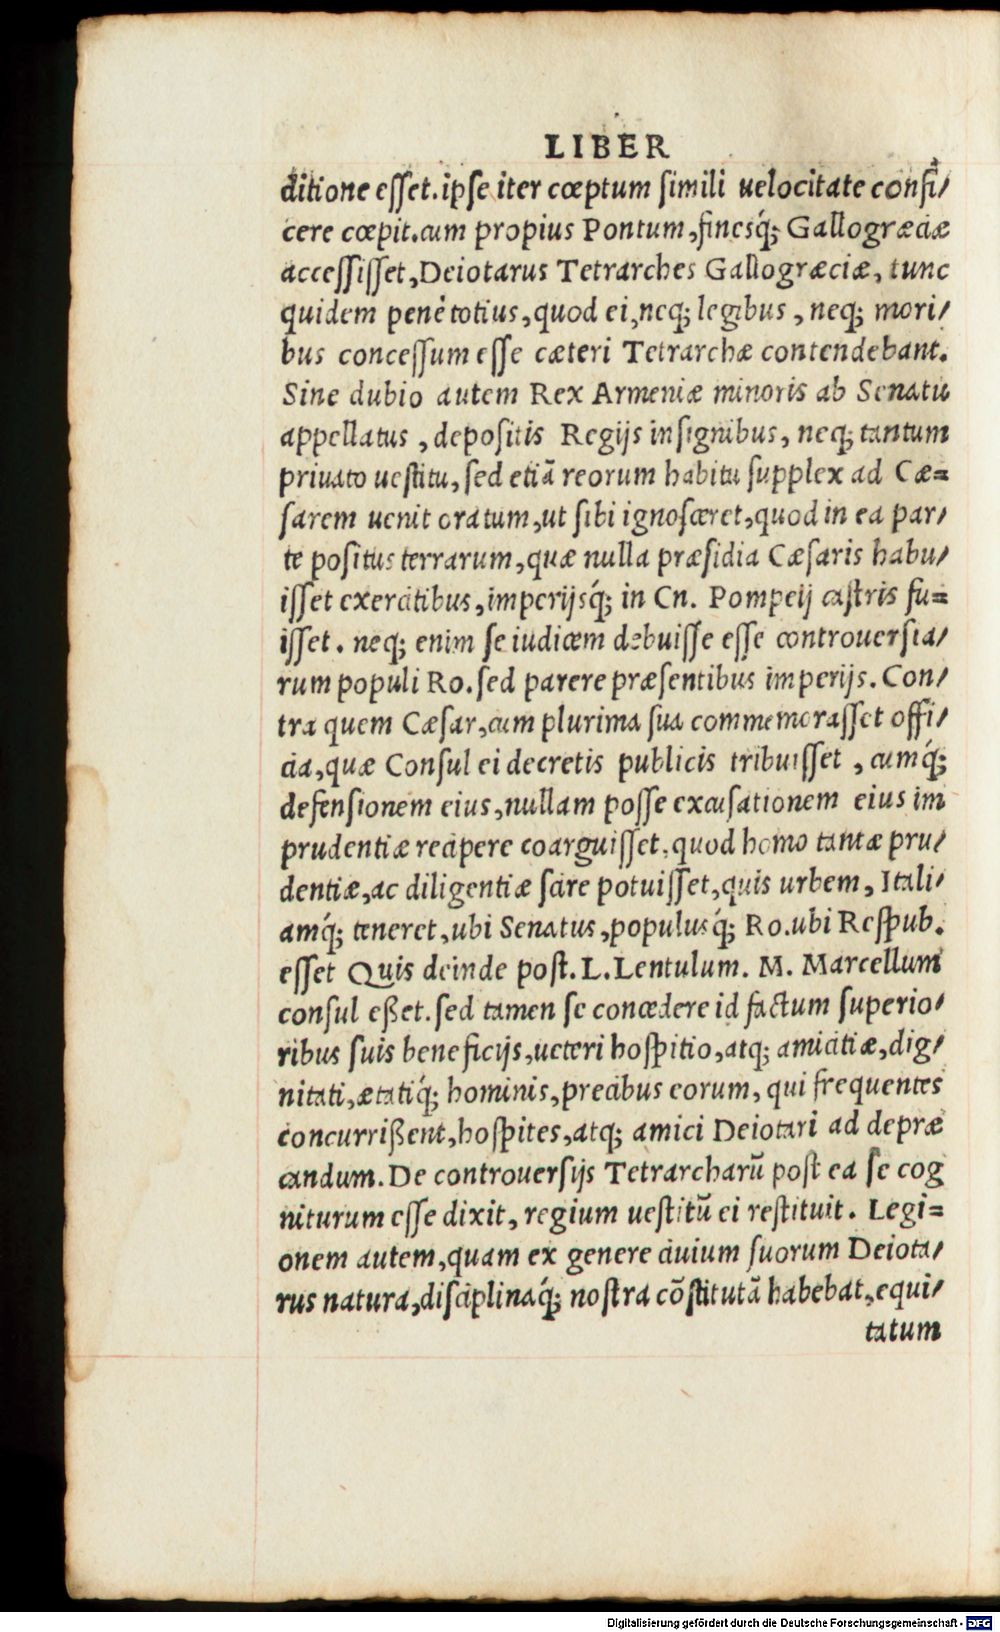 LIBER
ditione esset. ipse iter cœptum simili uelocitate confi/
cere cœpit. cum propius Pontum, finesq́; Gallogræciæ
accessisset, Deiotarus Tetrarches Gallogræciæ, tunc
quidem penè totius, quod ei, neq; legibus, neq; mori/
bus concessum esse cæteri Tetrarchæ contendebant.
Sine dubio autem Rex Armeniæ minoris ab Senatu
appellatus, depositis Regijs insignibus, neq; tantum
priuato uestitu, sed etiã reorum habitu supplex ad Cæ=
sarem uenit oratum, ut sibi ignosceret, quod in ea par/
te positus terrarum, quæ nulla præsidia Cæsaris habu/
isset exercitibus, imperijsq́; in Cn. Pompeij castris fu=
isset. neq; enim se iudicem debuisse esse controuersia/
rum populi Ro. sed parere præsentibus imperijs. Con/
tra quem Cæsar, cum plurima sua commemorasset offi/
cia, quæ Consul ei decretis publicis tribuisset, cumq́;
defensionem eius, nullam posse excusationem eius im
prudentiæ recipere coarguisset. quod homo tantæ pru/
dentiæ, ac diligentiæ scire potuisset, quis urbem, Itali/
amq́; teneret, ubi Senatus, populusq́; Ro. ubi Respub.
esset Quis deinde post. L. Lentulum. M. Marcellum
consul eßet. sed tamen se concedere id factum superio/
ribus suis beneficijs, ueteri hospitio, atq; amicitiæ, dig/
nitati, ætatiq́; hominis, precibus eorum, qui frequentes
concurrißent, hospites, atq; amici Deiotari ad depræ
candum. De controuersijs Tetrarcharũ post ea se cog
niturum esse dixit, regium uestitũ ei restituit. Legi=
onem autem, quam ex genere ciuium suorum Deiota/
rus natura, disciplinaq́; nostra cõstitutã habebat, equi/
tatum
Digitalisierung gefördert durch die Deutsche Forschungsgemeinschaft - DFG